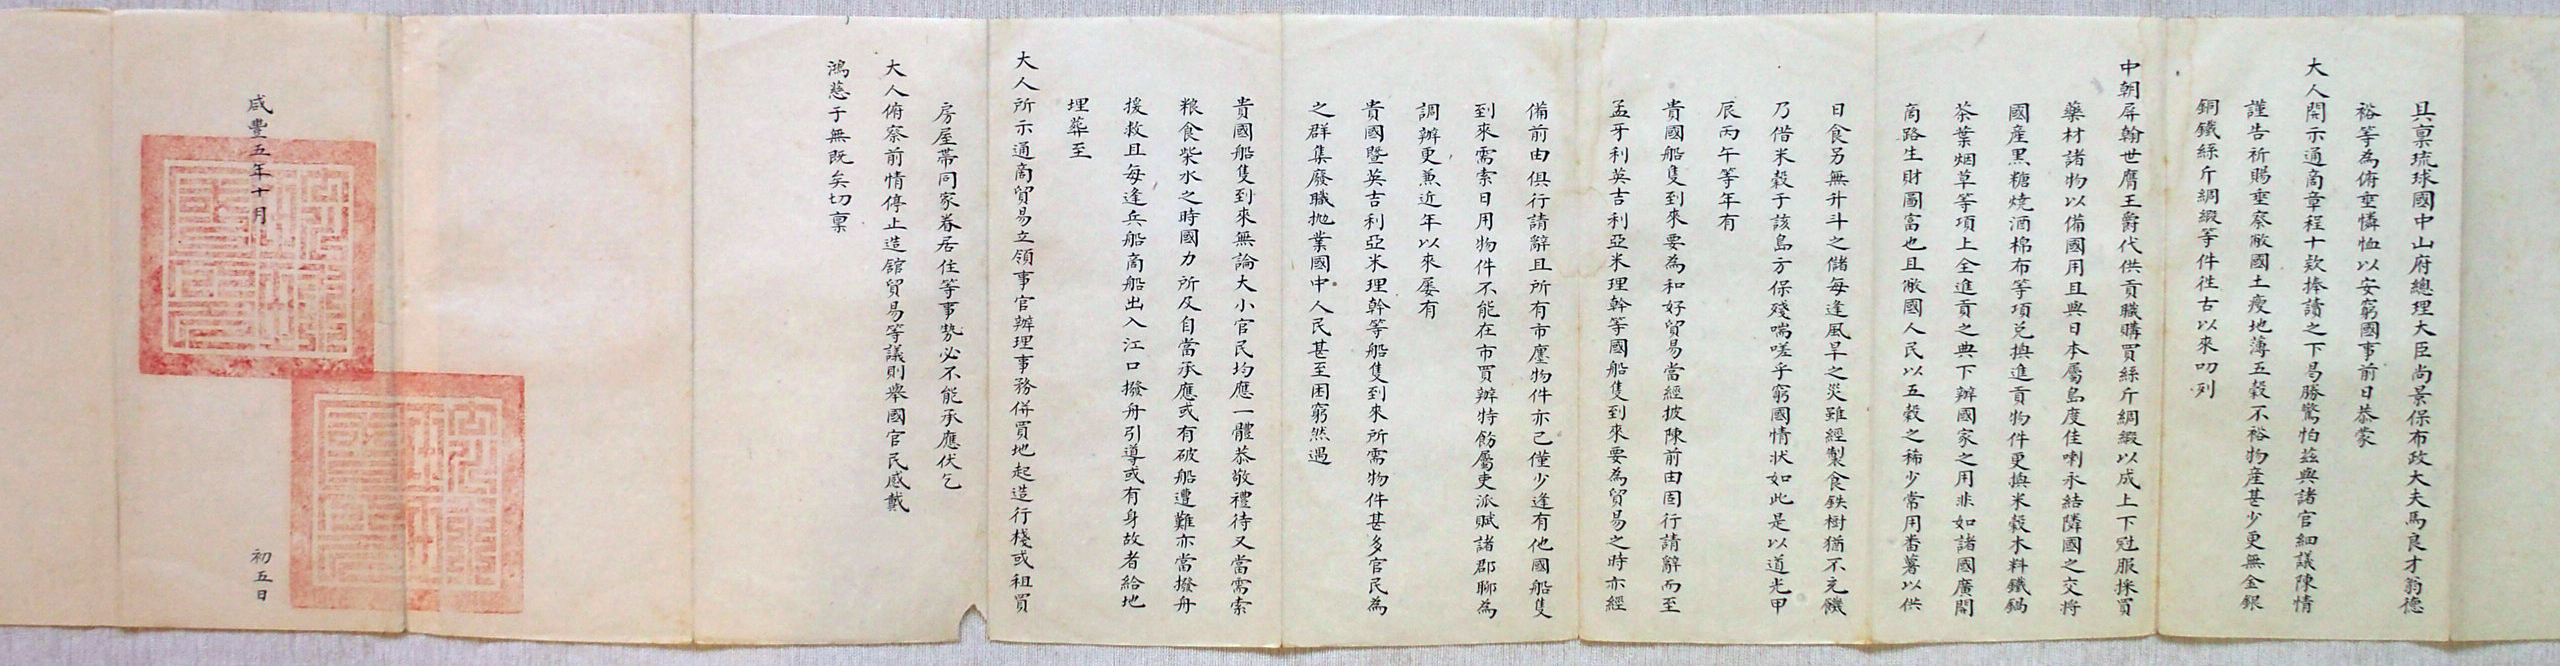 具稟琉球國中山府總理大臣尚景保布政大夫馬良才翁德
裕等為俯垂憐恤以安窮國事前日恭蒙
大人開示通商章程十款捧讀之下曷勝驚怕茲與諸官細議陳情
謹告祈賜垂察敝國土瘦地薄五穀不裕物產甚少更無金銀
銅鐵絲斤綢緞等件徃古以來叨列
中朝屏翰世膺王爵代供貢職購買絲斤綢緞以成上下冠服採買
藥材諸物以備國用且與日本屬島度佳喇永結隣國之交將
國產黑糖燒酒棉布等項兌換進貢物件更換米穀木料鐵鍋
茶葉烟草等項上全進貢之典下辦國家之用非如諸國廣開
商路生財圖富也且敝國人民以五穀之稀少常用畨薯以供
日食另無升斗之儲每逢風旱之災雖經製食鉄樹猶不充饑
乃借米穀于該島方保殘喘嗟乎窮國情狀如此是以道光甲
辰丙午等年有
貴國船隻到來要為和好貿易當經披陳前由固行請辭而至
孟牙利英吉利亞米理幹等國船隻到來要為貿易之時亦經
備前由俱行請辭且所有市廛物件亦已僅少逢有他國船隻
到來需索日用物件不能在市買辦特飭屬吏派賦諸郡聊為
調辦更兼近年以來屢有
貴國暨英吉利亞米理幹等船隻到來所需物件甚多官民為
之群集廢職拋業國中人民甚至困窮然遇
貴國船隻到來無論大小官民均應一體恭敬禮待又當需索
粮食柴水之時國力所及自當承應或有破船遭難亦當撥舟
援救且每逢兵船商船出入江口撥舟引導或有身故者給地
埋葬至
大人所示通商貿易立領事官辦理事務併買地起造行棧或租買
房屋帶同家眷居住等事勢必不能承應伏乞
大人俯察前情停止造館貿易等議則舉國官民感戴
鴻慈于無既矣切稟
咸豐五年十月
初五日